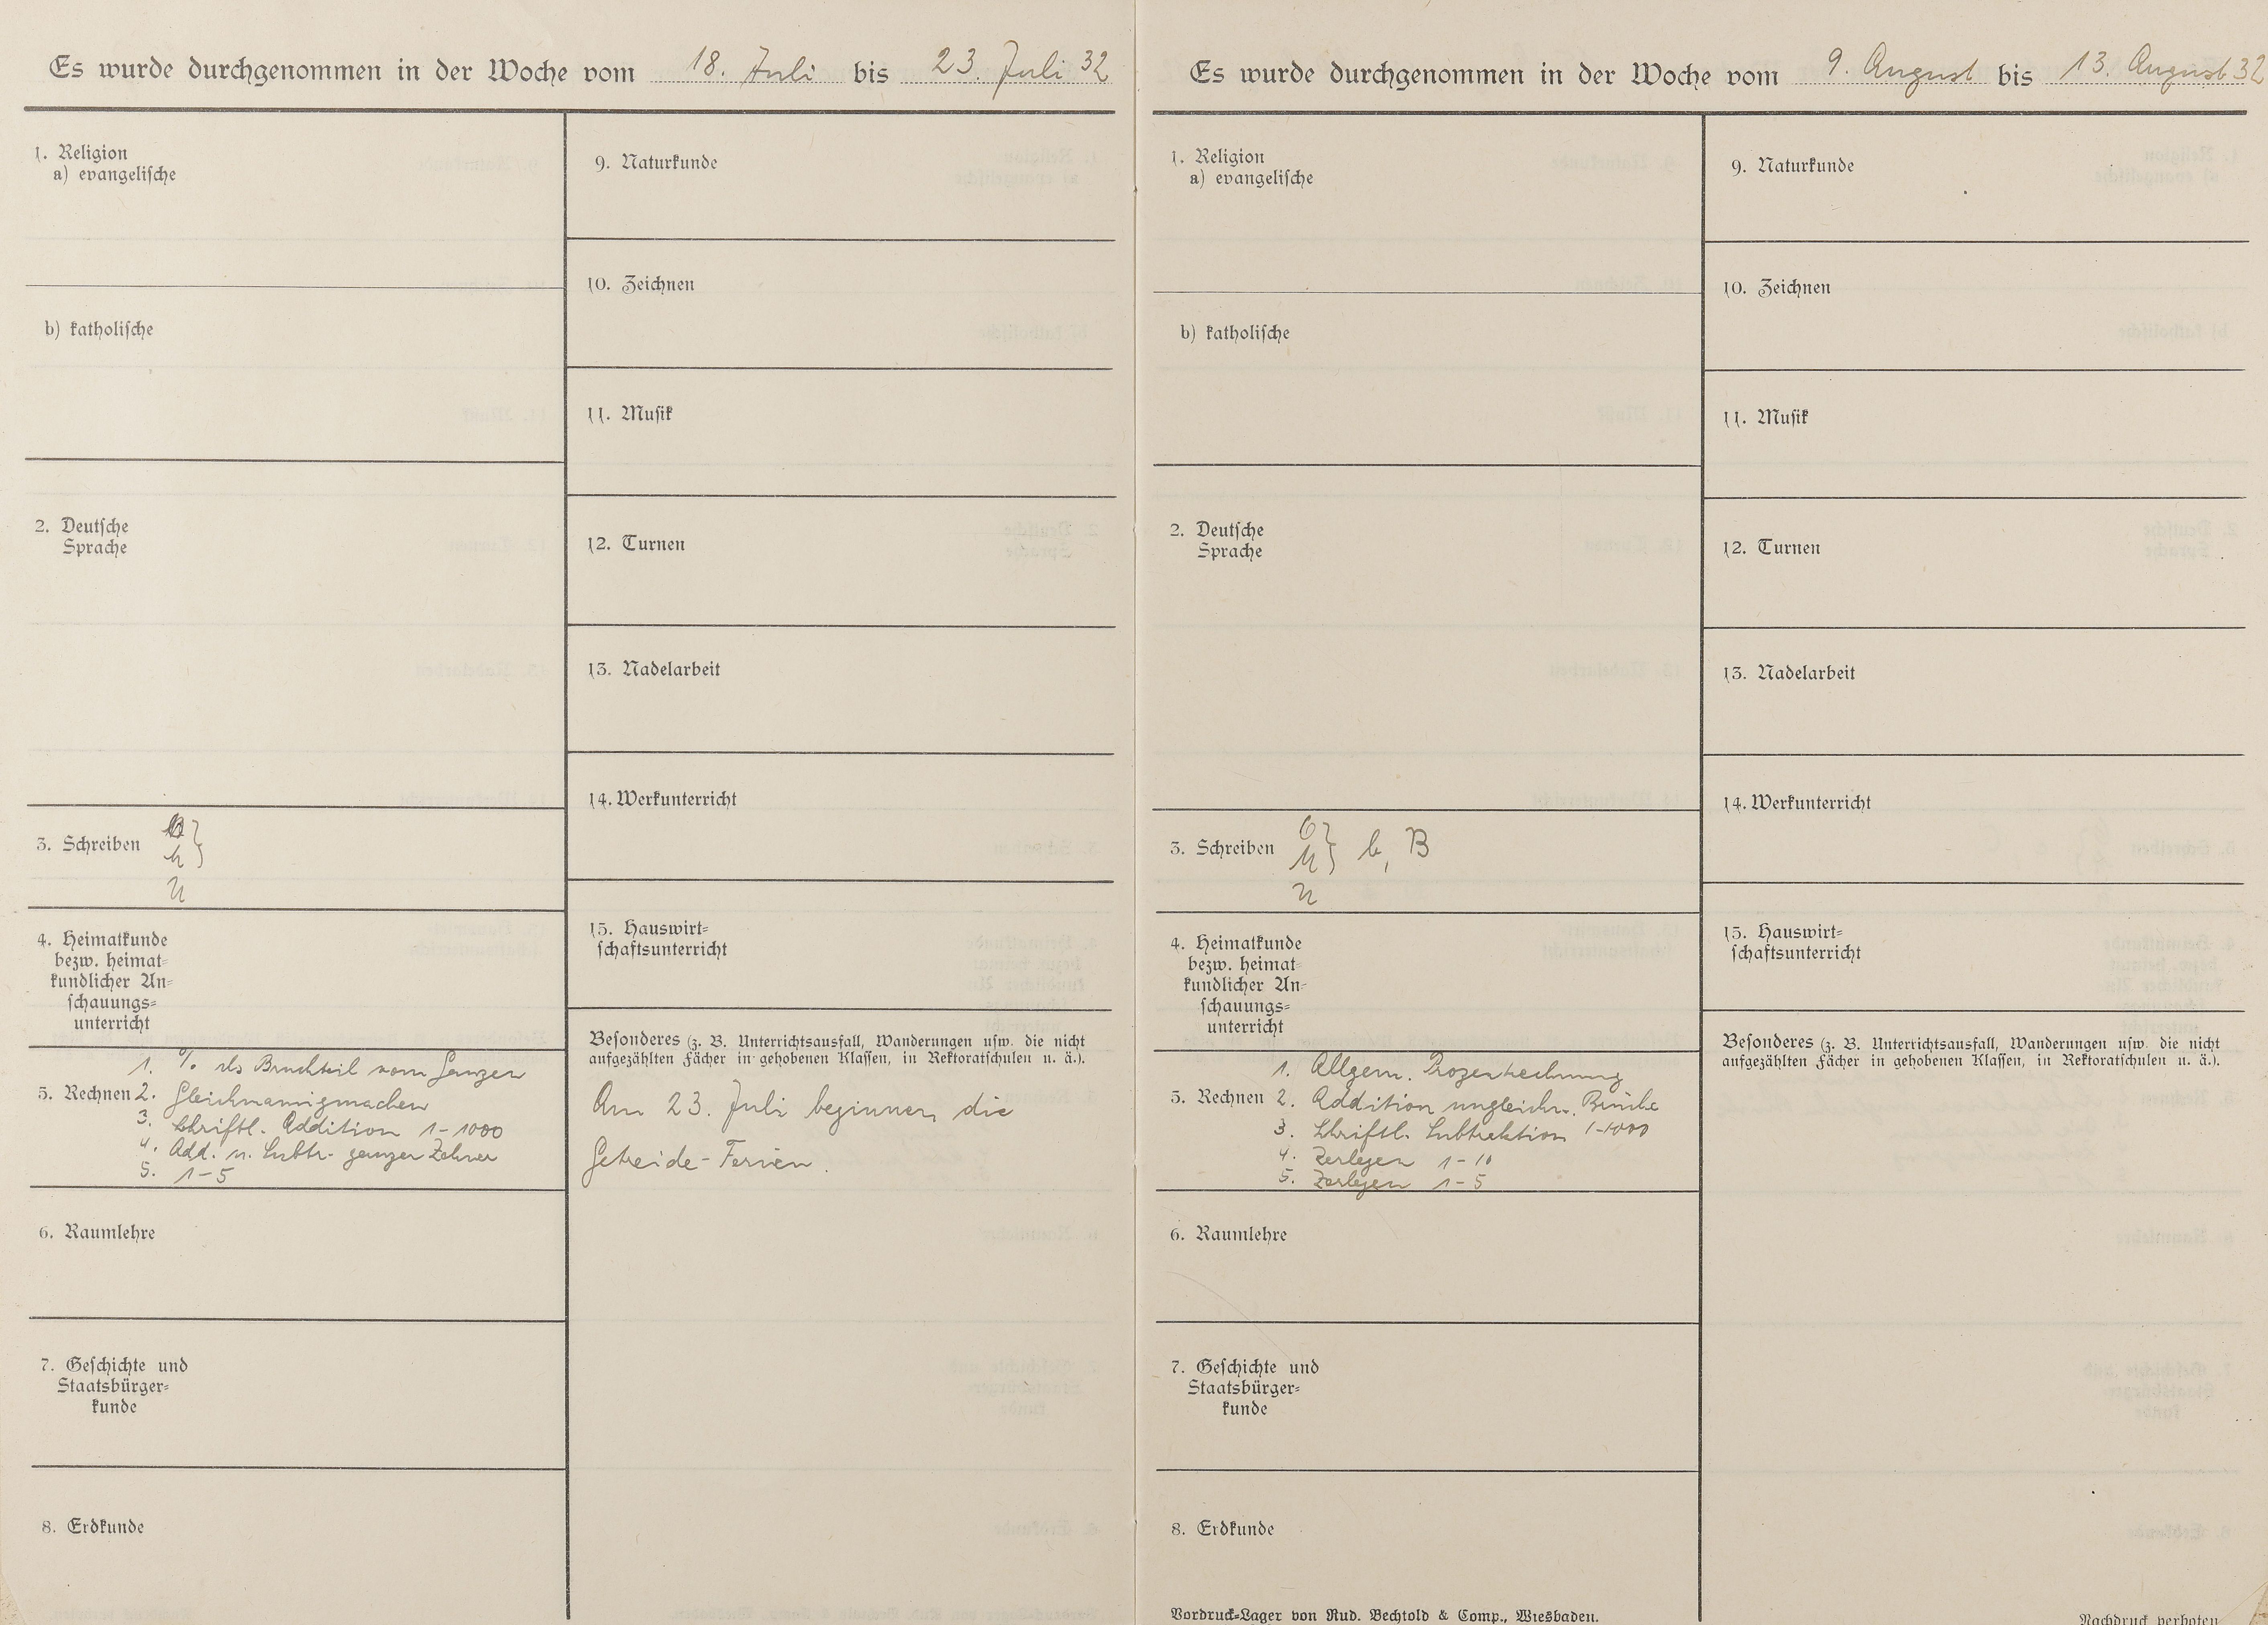 Es wurde durchgenommen in der Woche vom 18. Juli bis 23. Juli 32
1. Religion
a) evangelische
b) katholische
2. Deutsche
Sprache
3. Schreiben
4. Heimatkunde
bezw. heimat-
kundlicher An-
schauungs-
unterricht
1. % als Bruchteil vom Ganzen
5. Rechnen 2. Gleichnamigmachen
3. Schriftl. Addition 1-1000
4. Add. u. Subtr. ganzer Zehner
5. 1-5
6. Raumlehre
7. Geschichte und
Staatsbürger-
kunde
8. Erdkunde
9. Naturkunde
10. Zeichnen
11. Musik
12. Turnen
13. Nadelarbeit
14. Werkunterricht
15. Hauswirt-
schaftsunterricht
Besonderes (z. B. Unterrichtsausfall, Wanderungen usw. die nicht
aufgezählten Fächer in gehobenen Klassen, in Rektoratschulen u. ä.).
Am 23. Juli beginnen die
Getreide-Ferien.
Es wurde durchgenommen in der Woche vom 9. August bis 13. August 32
1. Religion
a) evangelische
b) katholische
2. Deutsche
Sprache
3. Schreiben b, B
4. Heimatkunde
bezw. heimat-
kundlicher An-
schauungs-
unterricht
1. Allgem. Prozentrechnung
5. Rechnen 2. Addition ungleichn. Brüche
3. Schriftl. Subtraktion 1-1000
4. Zerlegen 1-10
5. Zerlegen 1-5
6. Raumlehre
7. Geschichte und
Staatsbürger-
kunde
8. Erdkunde
Vordruck-Lager von Rud. Bechtold & Comp., Wiesbaden.
9. Naturkunde
10. Zeichnen
11. Musik
12. Turnen
13. Nadelarbeit
14. Werkunterricht
15. Hauswirt-
schaftsunterricht
Besonderes (z. B. Unterrichtsausfall, Wanderungen usw. die nicht
aufgezählten Fächer in gehobenen Klassen, in Rektoratschulen u. ä.).
Nachdruck verboten